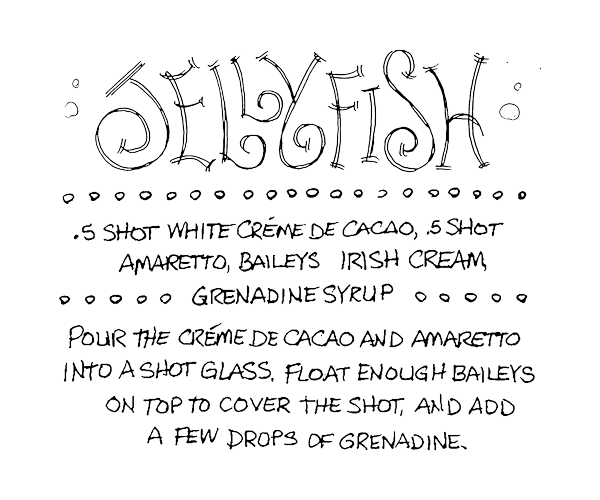 JELLYFISH
.5 SHOT WHITE CRÉME DE CACAO, .5 SHOT
AMARETTO, BAILEYS IRISH CREAM,
GRENADINE SYRUP
POUR THE CRÉME DE CACAO AND AMARETTO
INTO A SHOT GLASS. FLOAT ENOUGH BAILEYS
ON TOP TO COVER THE SHOT, AND ADD
A FEW DROPS OF GRENADINE.